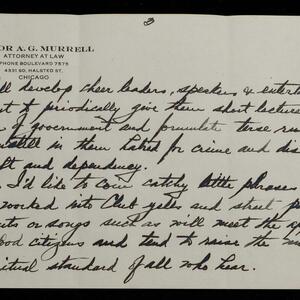 3
OR A. G. MURRELL
ATTORNEY AT LAW
PHONE BOULEVARD 7575
4331 SO. HALSTED ST.
CHICAGO
ll develop cheer leaders, speakers & entert
t to periodically give them short lectur
of government and formulate terse ru
instill in them hatred for crime and dis
ft and dependency.
I'd like to coin catchy little phrases
worked into Club yells and street p
ts or songs such as will meet the ap
ood citizens and tend to raise the m
itual standard of all who hear.